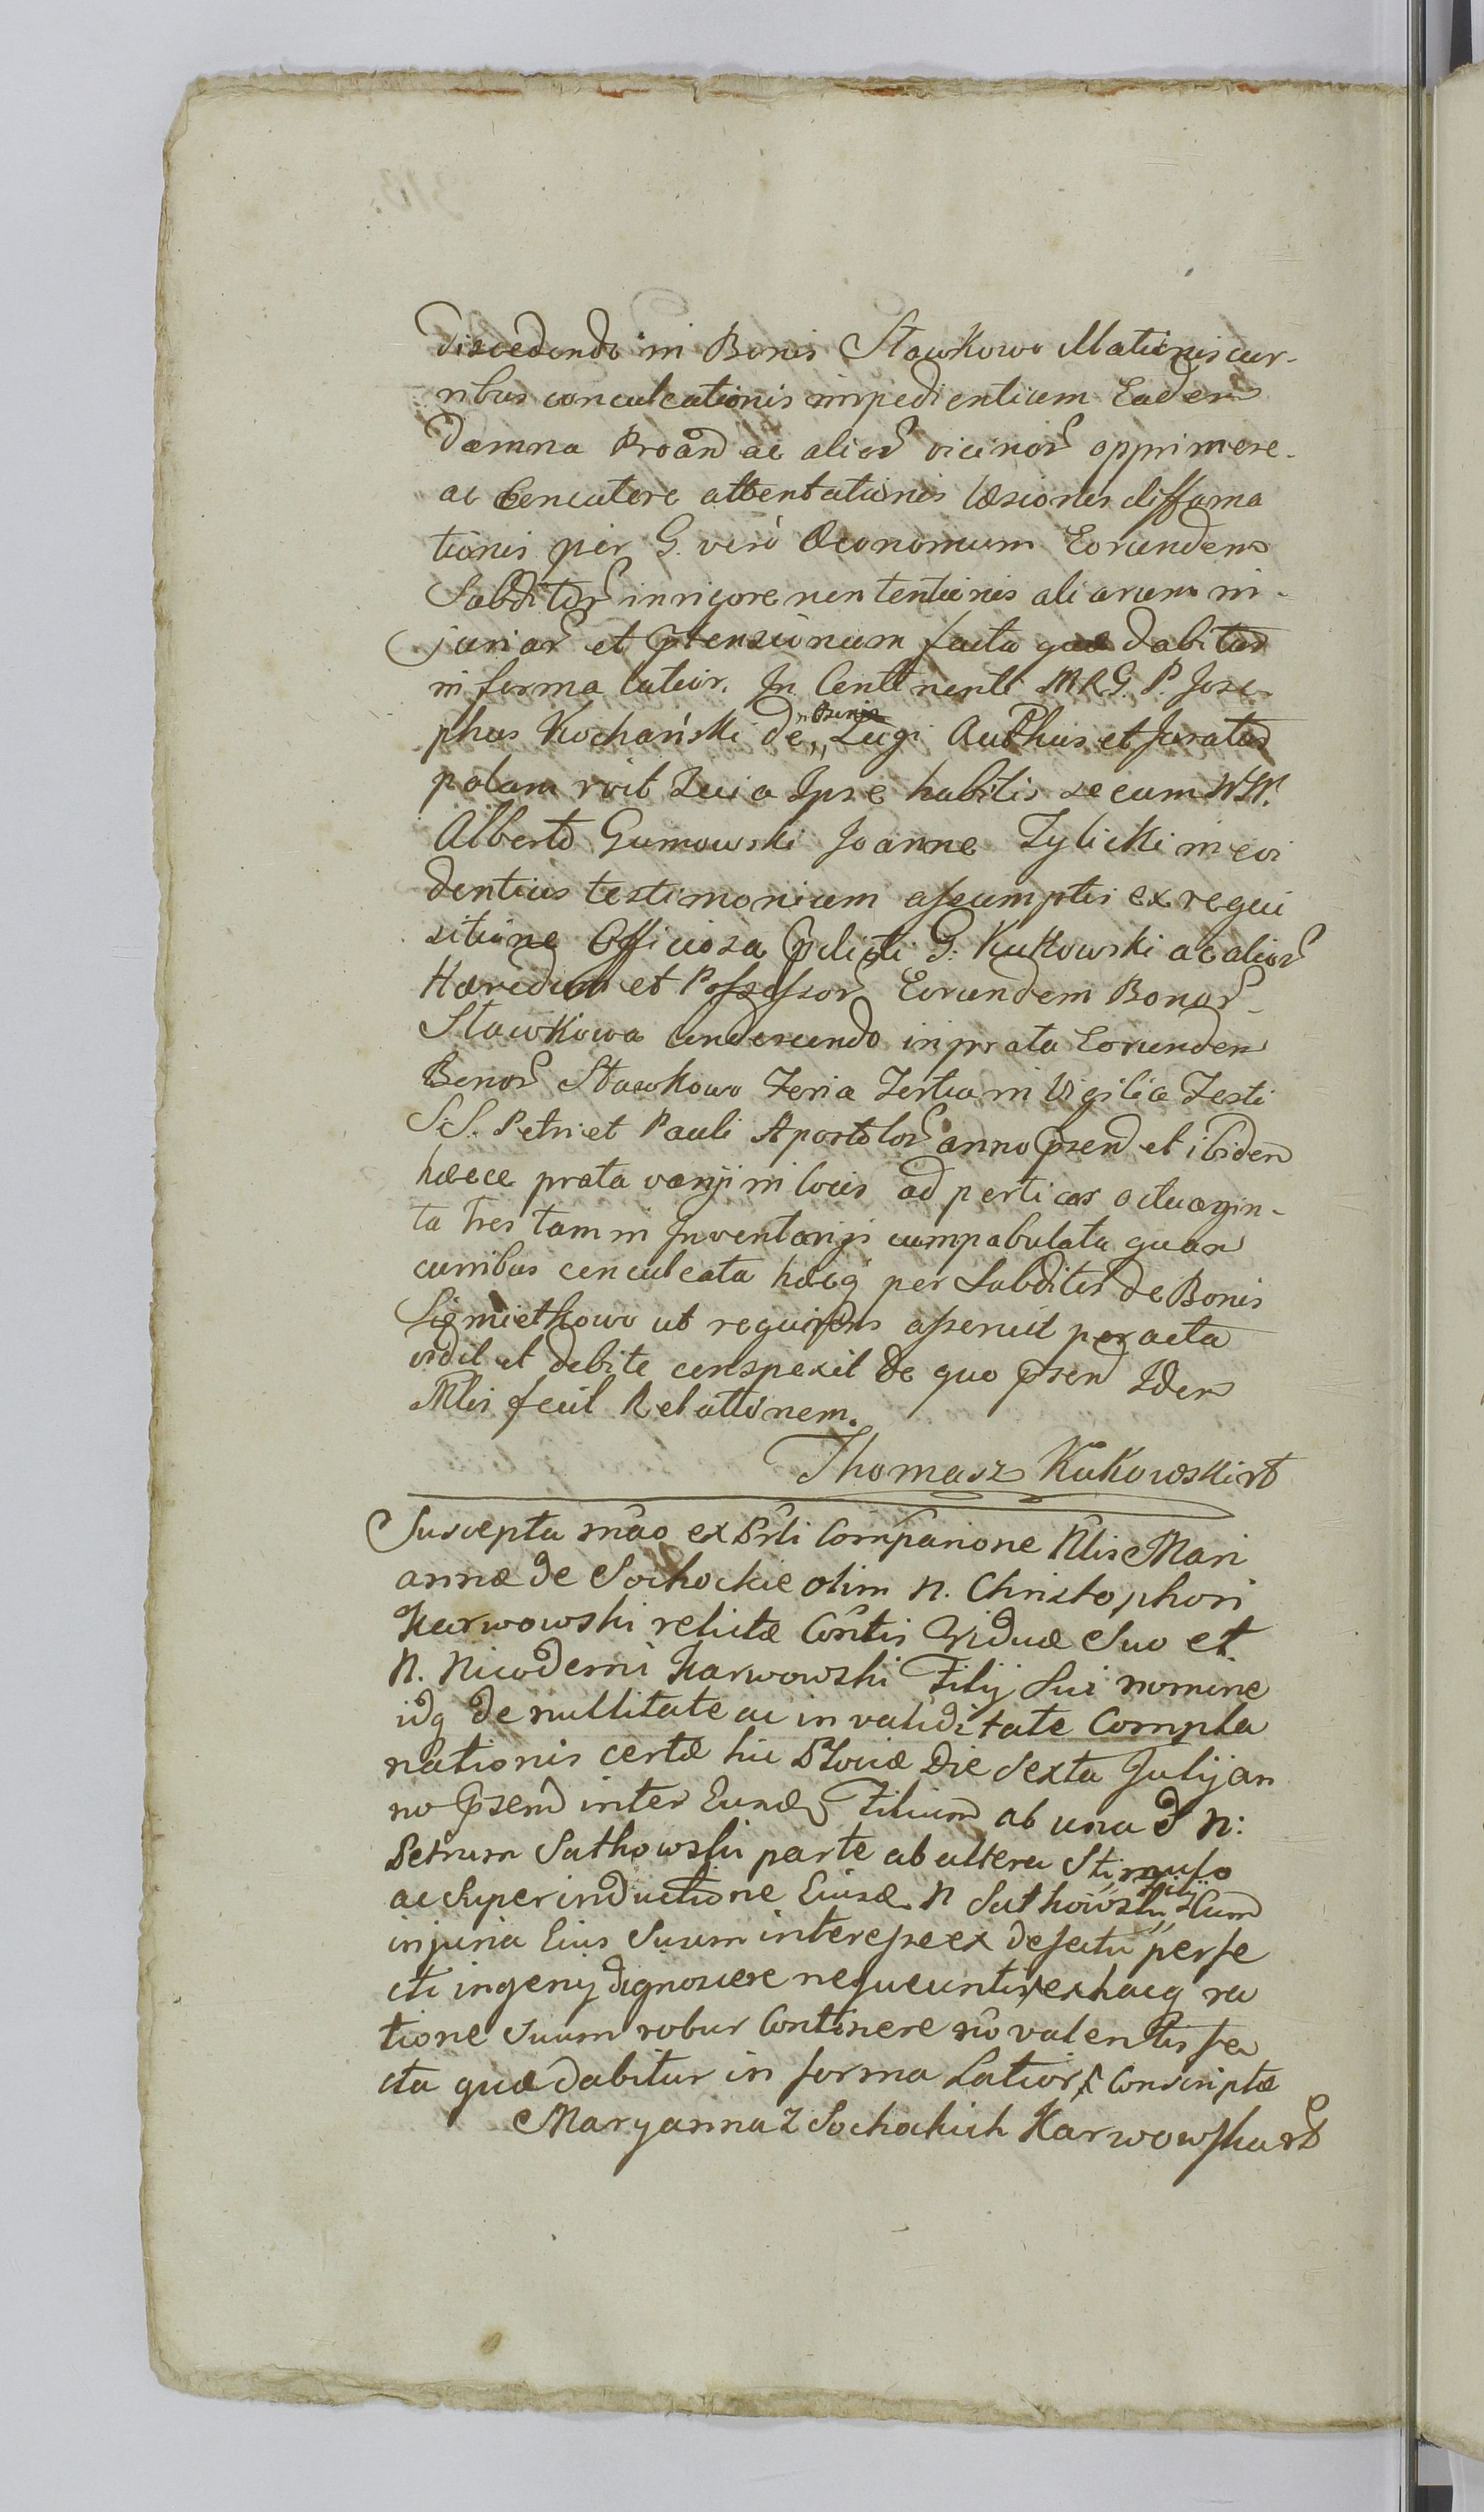 discedendo in Bonis Stawkowo Mationis cur-
ribus conculcationis impedientium Eadem
damna Proãnd ac alior vicinor opprimere
ac Concutere attentationis læsionis diffama
tionis per G. verò Œconomum Eorundem
Subditor in rigore non tentionis aliarum in-
juriar et ptensionum facta quæ dabitur
in forma latior. In Continenti MRG. P. Jose
phus Kochański de Bonis Lugi Authus et Juratus
palam rvit Quia Ipse habitis secum NN.
Alberto Gumowski Joanne Zylicki in evi
dentius testimonium assumptis ex requi
sitione Officiosa pdicti G: Kukowski ac alior
Hæredum et Possessor Eorundem Bonor
Stawkowa condescendo in prata Eorundem
Bonor Stawkowo Feria Tertia in Vigilia Festi
SS. Petri et Pauli Apostolor anno psend et ibidem
hæcce prata varijs in locis ad perticas octuagin-
ta tres tam in Inventarijs cumpabulata quam
curribus conculcata hæcq per Subditos de Bonis
Siemiethowo ut requirens asseruit peracta
vidit et debite conspexit de quo psend Idem
Mlis fecit Relationem.
Thomasz Kukowski rt
Suscepta mão ex Prti Compãrione Nlis Mari
annæ de Sochockie olim N. Christophori
Karwowski relictæ Cõrtis Viduæ Suo et
N. Nicodemi Karwowski Filij Sui nomine
idq de nullitate ac invaliditate Compla
nationis certæ hic Plociæ Die Sexta Julij an
no psend inter Eund Filium ab una & N:
Petrum Sutkowski parte ab altera Stimulo
ac Superinductione Ejusd. N Sutkowski Filij Cum
injuria Eius Suum interesse ex defectu perfe
cti ingenij dignoscere nequeuntis exhacq ra
tione Suum robur Continere nõ valentis fa
cta quæ dabitur in forma Latiori Conscriptæ
Maryanna z Sochockich Karwowska rt